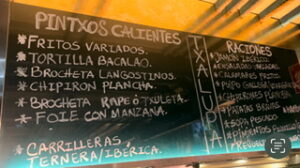 PINTXOS CALIENTES
* FRITOS VARIADOS.
* TORTILLA BACALAO.
* BROCHETA LANGOSTINOS.
* CHIPIRON PLANCHA.
* BROCHETA RAPE ó TXULETA.
* FOIE CON MANZANA.
* CARRILLERAS,
TERNERA/IBERICA.
TXALUPA
RACIONES
* JAMON IBERICO
* CALAMARES FRITOS.
* PULPO
* CHIPIRONES PLANCHA
* PATATAS BRAVAS
* SOPA PESCADO
* PIMIENTOS